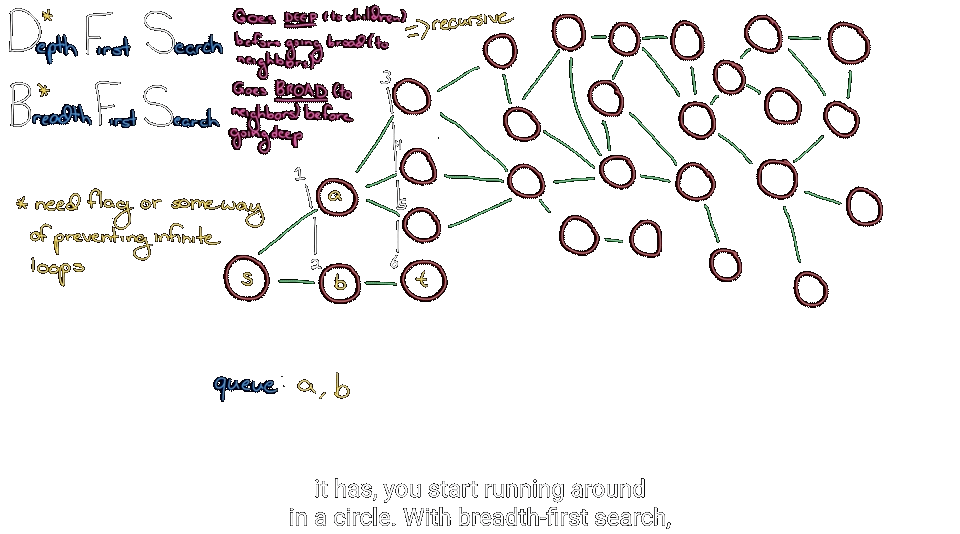 Depth* First Search
Goes DEEP (to children)
before going broad (to
neighbors)
=> recursive
Breadth* First Search
Goes BROAD (to
neighbors) before
going deep
* need flag or some way
of preventing infinite
loops
1
2
3
4
5
6
a
s
b
t
queue: a, b
it has, you start running around
in a circle. With breadth-first search,